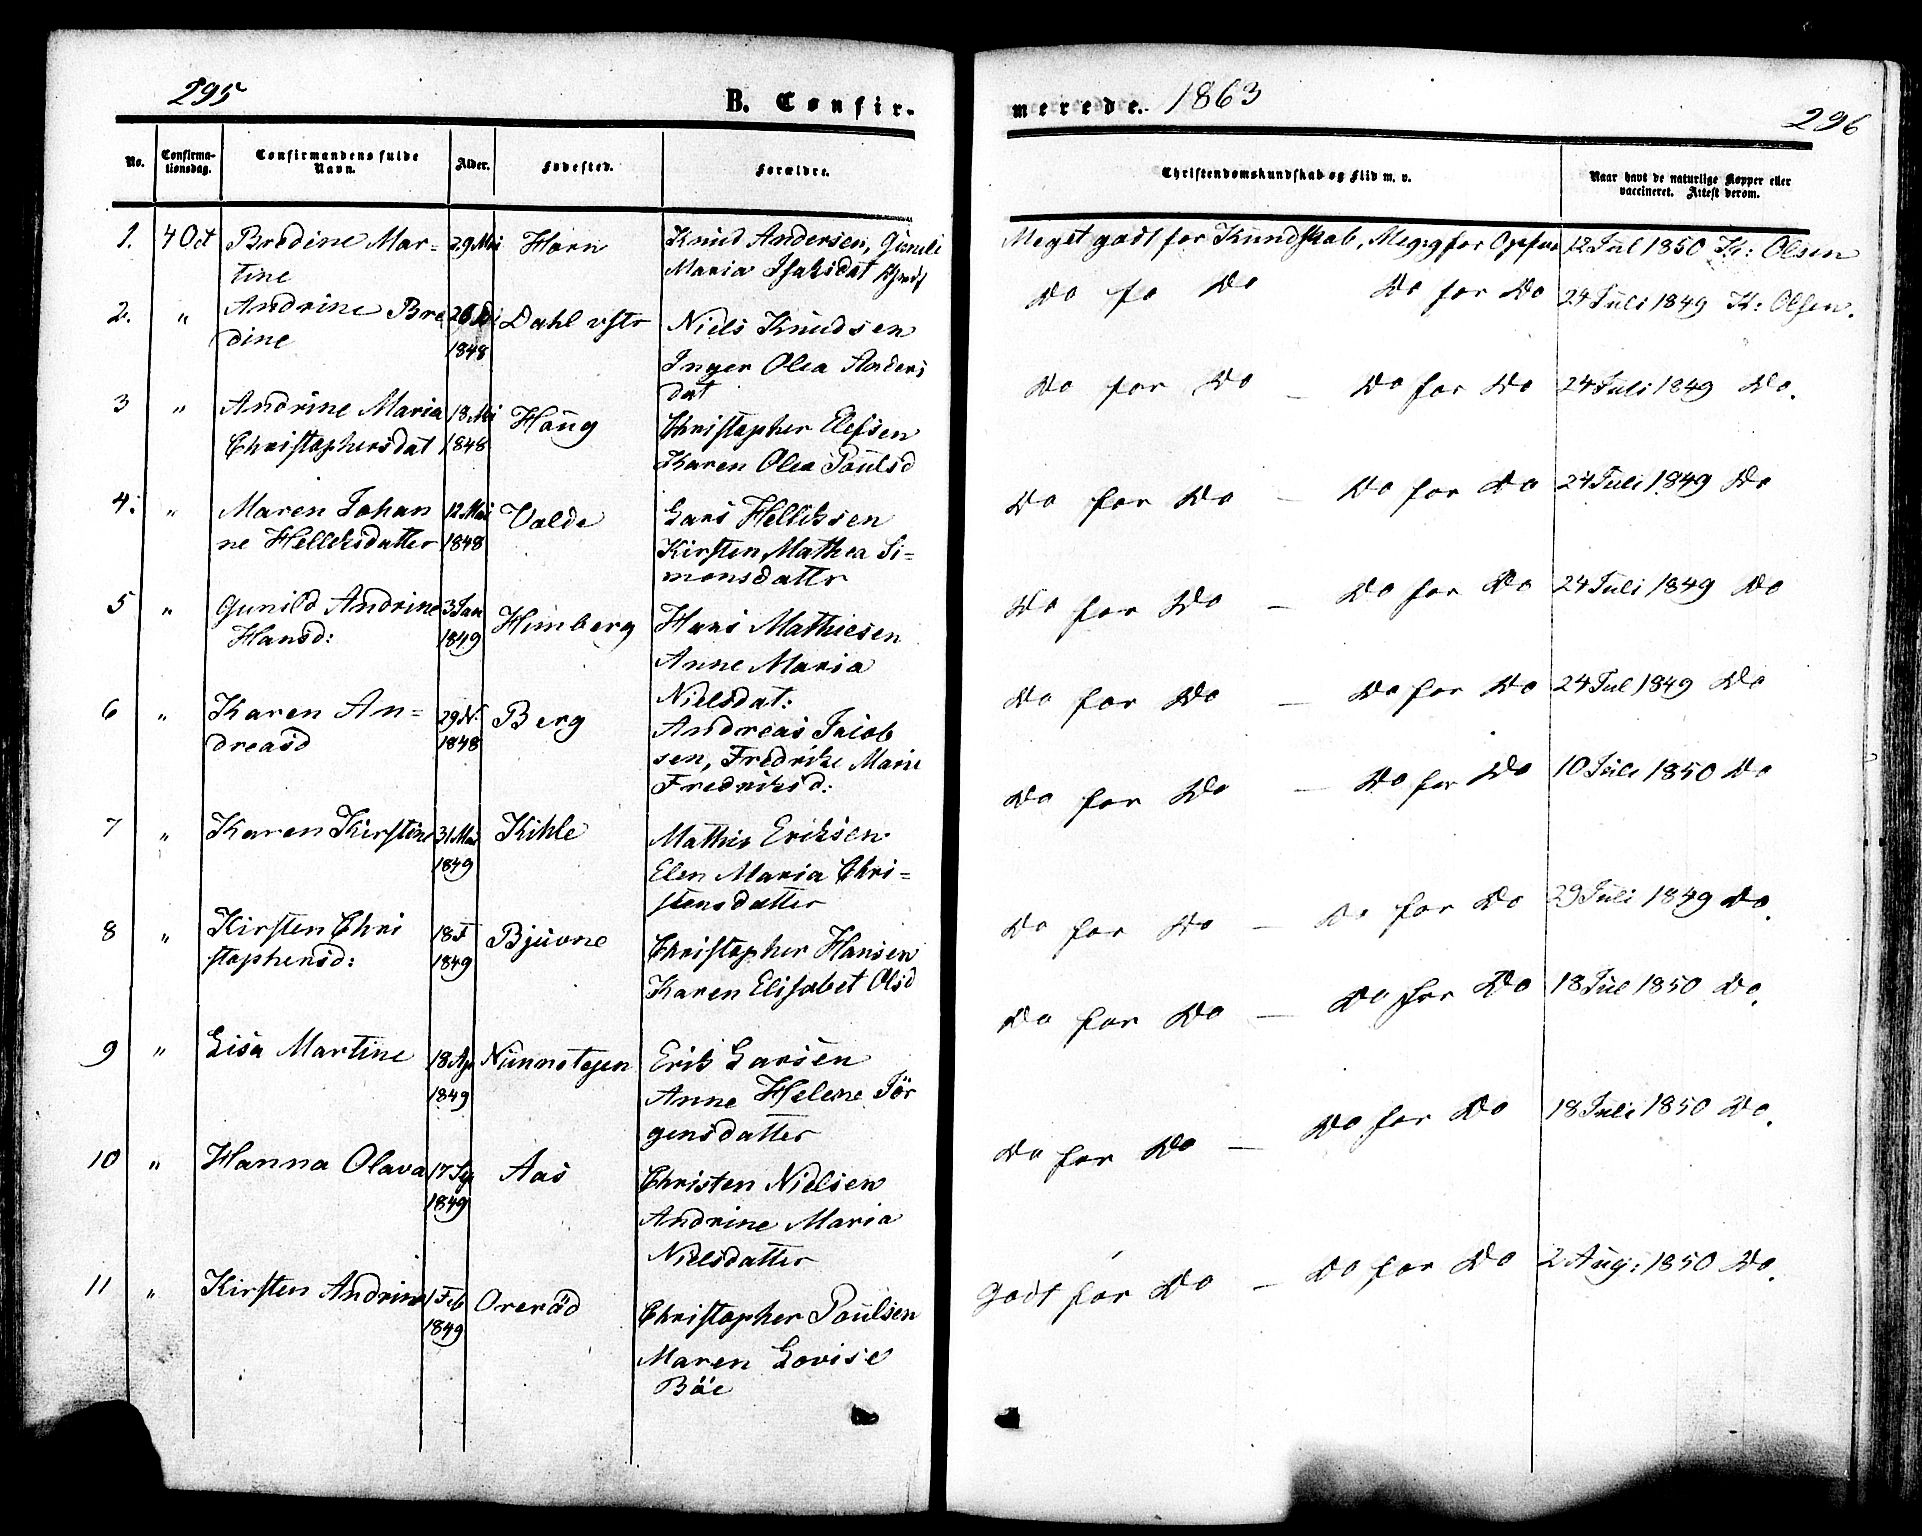 295
B. Confir-
merede. 1863
296
No.
Confirma-
tionsdag.
Confirmandens fulde
Navn.
Alder.
Fodested.
Forældre.
Christendomskundskab og Flid m. v.
Naar havt de naturlige Kopper eller
vaccineret. Attest derom.
1. 4 Oct Bredine Mar-
tine
29 Mai Horn
Knud Andersen, Gunild
Maria Isaksdat
Meget godt for Kundskab, Meg: g for Opførs
12 Jul 1850 K: Olsen
2. " Andrine Bre
dine
26
1848
Dahl vstr
Niels Knudsen
Inger Olea Anders
dat
Do fo Do Do for Do
24 Juli 1849 K: Olsen.
3 " Andrine Maria
Christophersdat
18 Mai
1848
Haug
Christopher Elefsen
Karen Olea Paulsd
Do for Do – Do for Do
24 Juli 1849 Do.
4: " Maren Johan
ne Helleksdatter
12 Mai
1848
Valde
Lars Helliksen
Kirsten Mathea Si=
monsdattr
Do for Do – Do for Do
24 Juli 1849 Do
5 " Gunild Andrine
Hansd:
3 Jan
1849
Himberg
Hans Mathiesen
Anne Maria
Nielsdat:
Do for Do – Do for Do
24 Juli 1849 Do
6 " Karen An=
dreasd
29 N.
1848
Berg
Andreas Jacob
sen, Fredrike Marie
Fredriksd:
Do for Do – Do for Do
24 Jul 1849 Do
7 " Karen Kirstine
31 Mai
1849
Kihle
Mathis Eriksen
Elen Maria Chri=
stensdatter
Do for Do – Do for Do
10 Juli 1850 Do
8 " Kirsten Chri
stophersd:
18 F
1849
Bjuvne
Christopher Hansen
Karen Elisabet Olsd
Do for Do – Do for Do
29 Juli 1849 Do.
9 " Lisa Martine
18 Ap
1849
Nunnetejen
Erik Larsen
Anne Helene Jör
gensdatter
Do for Do – Do for Do
18 Jul 1850 Do.
10 " Hanna Olava
17 Sep
1849
Aas
Christen Nielsen
Andrine Maria
Nielsdatter
Do for Do – Do for Do
18 Juli 1850 Do.
11 " Kirsten Andrine
1 Feb
1849
Oreröd
Christopher Paulsen
Maren Lovise
Böe
Godt for Do – Do for Do
2 Aug: 1850 Do.